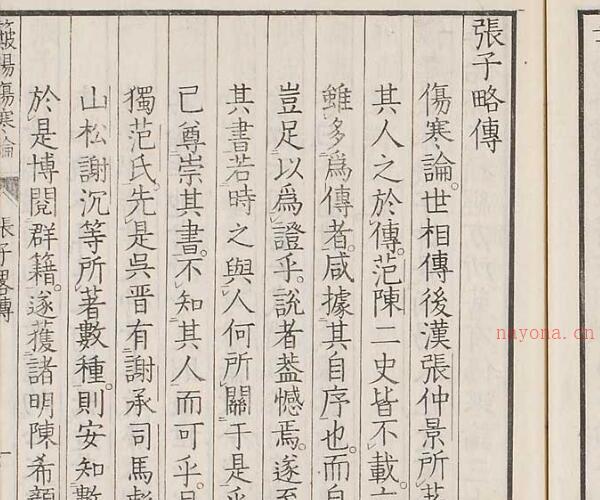 張子略傳
傷寒論世相傳後漢張仲景所
其人之於傳范陳二史皆不載
雖多爲傳者咸據其自序也而自
豈足以爲證乎說者蓋憾焉遂至
其書若時之與人何所關于是乎
已尊崇其書不知其人而可乎
獨范氏先是吳晋有謝承司馬彪
山松謝沉等所著數種則安知數
於是博閱群籍遂獲諸明陳希
傷寒論 張子畧傳
nayona.cn